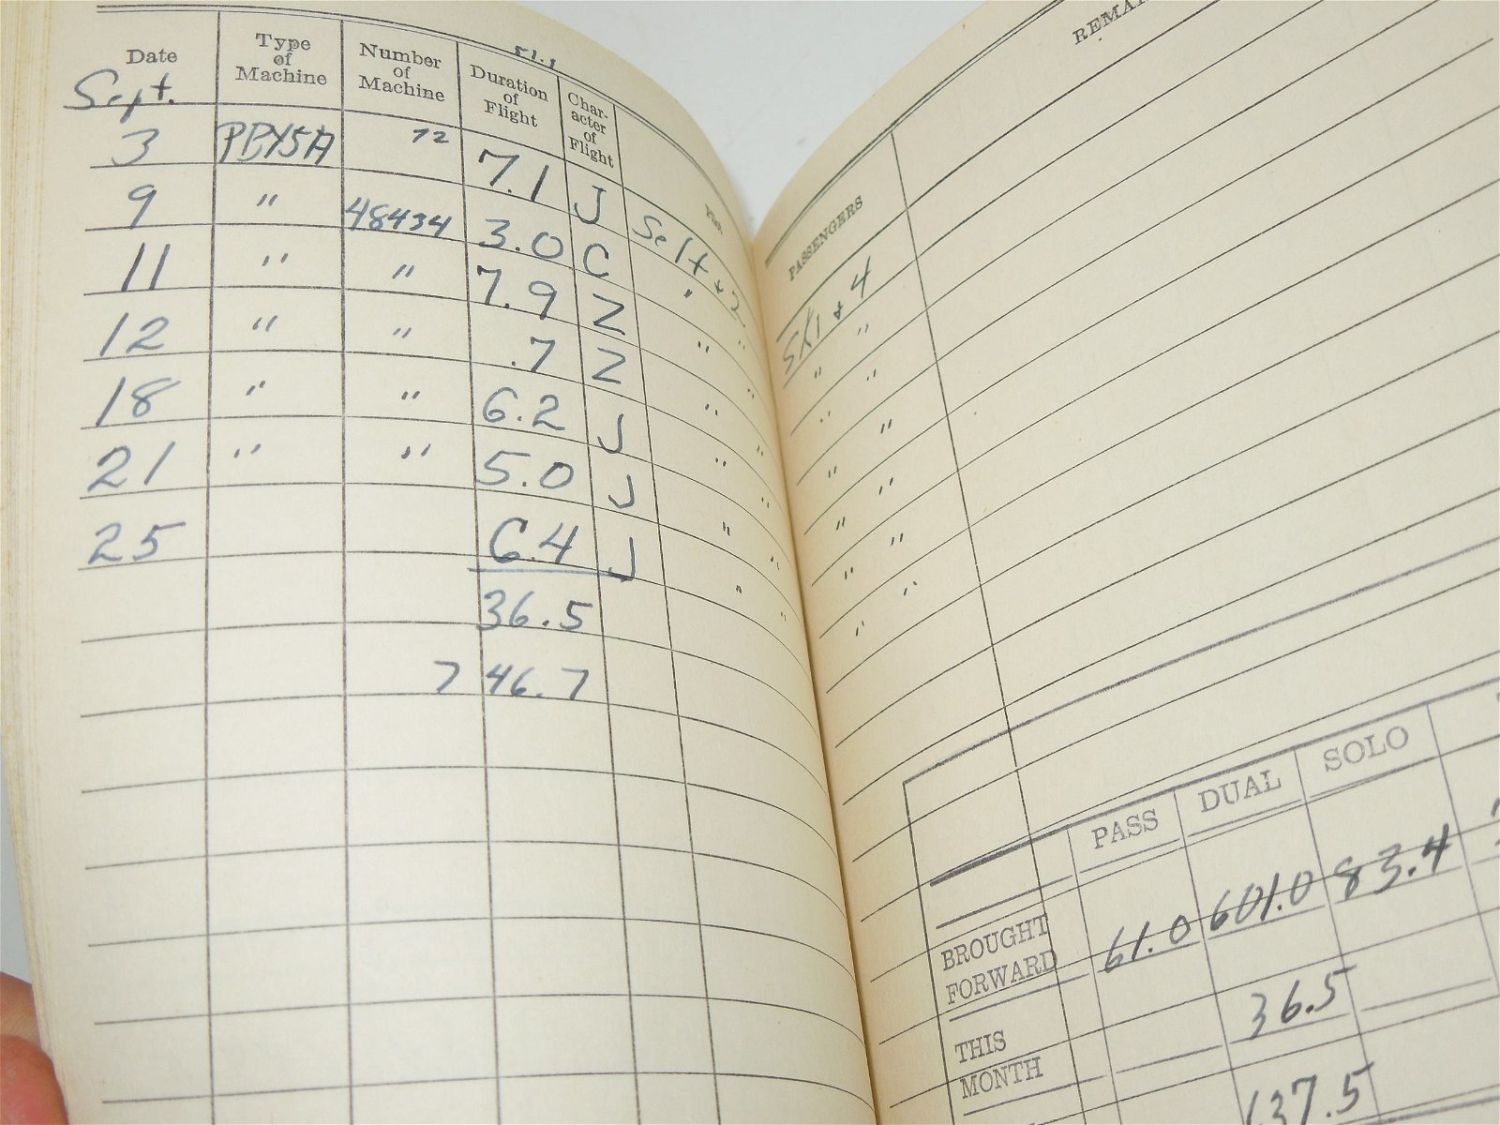 51.1
Date Type of Machine Number of Machine Duration of Flight Character of Flight Pilot
Sept.
3 PBY5A 72 7.1 J Self + 2
9 " 48434 3.0 C " "
11 " " 7.9 Z " "
12 " " .7 Z " "
18 " " 6.2 J " "
21 " " 5.0 J " "
25 6.4 J " "
36.5
746.7
PASSENGERS REMAR
+ 4
" "
" "
" "
" "
" "
" "
PASS DUAL SOLO
BROUGHT FORWARD 61.0 601.0 83.4
THIS MONTH 36.5
637.5